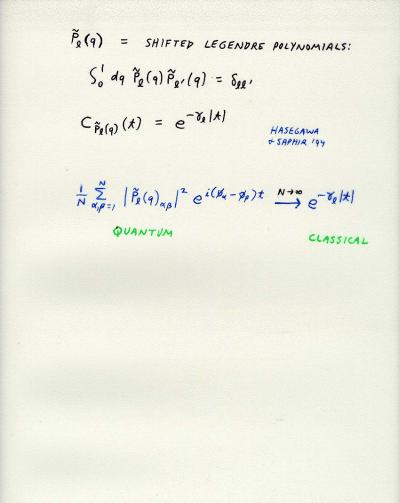 P̃ₗ(q) = SHIFTED LEGENDRE POLYNOMIALS:
∫₀¹ dq P̃ₗ(q) P̃ₗ'(q) = δₗₗ'
C_P̃ₗ(q) (t) = e^{-γₗ|t|}
HASEGAWA
& SAPHIR '94
1/N Σ_{α,β=1}^{N} |P̃ₗ(q)_{αβ}|² e^{i(φ_α - φ_β)t} →^{N→∞} e^{-γₗ|t|}
QUANTUM
CLASSICAL